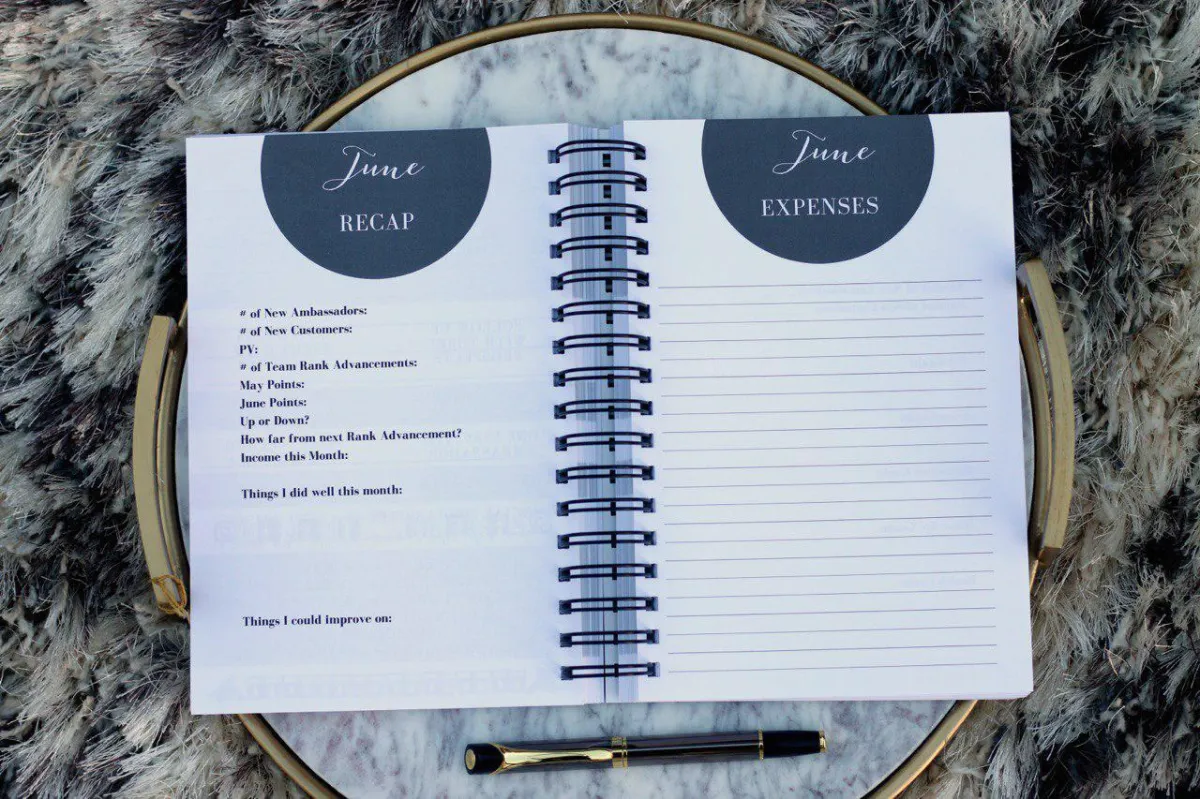 June
RECAP
# of New Ambassadors:
# of New Customers:
PV:
# of Team Rank Advancements:
May Points:
June Points:
Up or Down?
How far from next Rank Advancement?
Income this Month:
Things I did well this month:
Things I could improve on:
June
EXPENSES